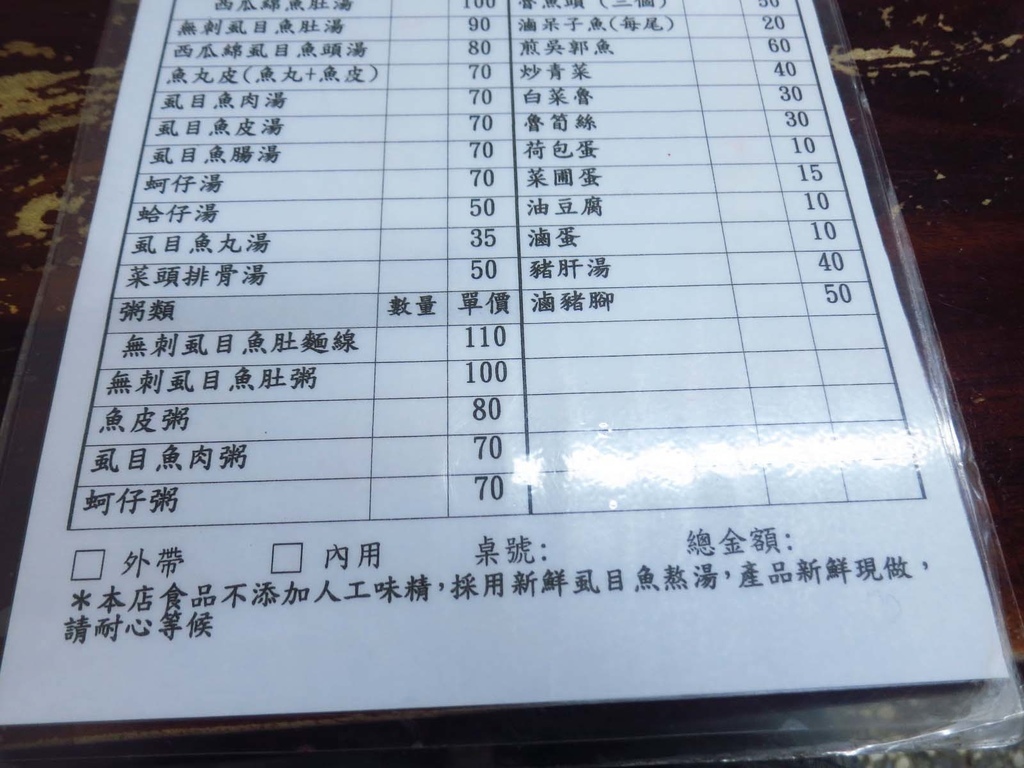 西瓜綿魚肚湯 100 魯魚頭(三個) 50
無刺虱目魚肚湯 90 滷呆子魚(每尾) 20
西瓜綿虱目魚頭湯 80 煎吳郭魚 60
魚丸皮(魚丸+魚皮) 70 炒青菜 40
虱目魚肉湯 70 白菜魯 30
虱目魚皮湯 70 魯筍絲 30
虱目魚腸湯 70 荷包蛋 10
蚵仔湯 70 菜圃蛋 15
蛤仔湯 50 油豆腐 10
虱目魚丸湯 35 滷蛋 10
菜頭排骨湯 50 豬肝湯 40
粥類 數量 單價 滷豬腳 50
無刺虱目魚肚麵線 110
無刺虱目魚肚粥 100
魚皮粥 80
虱目魚肉粥 70
蚵仔粥 70
□ 外帶 □ 內用 桌號: 總金額:
*本店食品不添加人工味精,採用新鮮虱目魚熬湯,產品新鮮現做,
請耐心等候